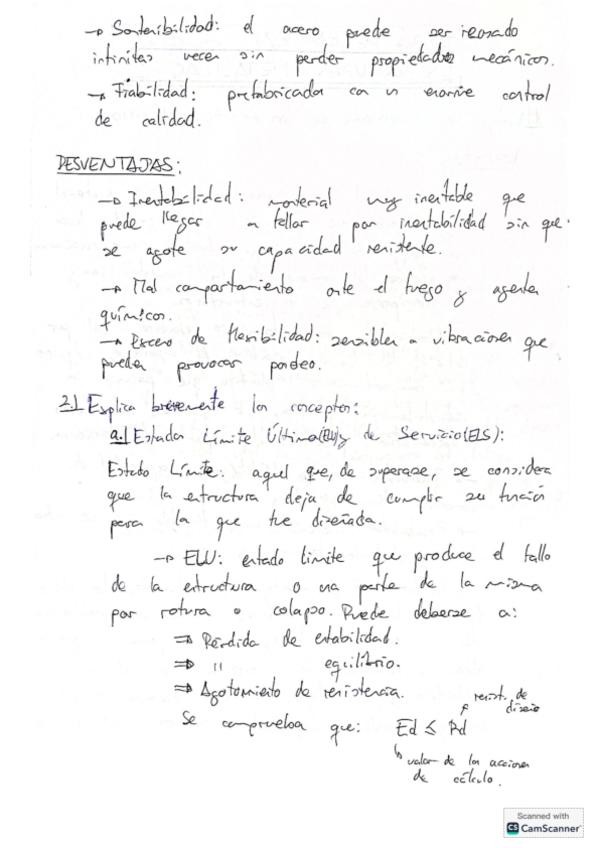 → Sostenibilidad: el acero puede ser reusado
infinitas veces sin perder propiedades mecánicas.
→ Fiabilidad: prefabricados con un enorme control
de calidad.
DESVENTAJAS:
→ Inestabilidad: material muy inestable que
puede llegar a fallar por inestabilidad sin que
se agote su capacidad resistente.
→ Mal comportamiento ante el fuego y agentes
químicos.
→ Exceso de flexibilidad: sensibles a vibraciones que
pueden provocar pandeo.
2.| Explica brevemente los conceptos:
a.| Estados Límite Último(ELU) y de Servicio(ELS):
Estado Límite: aquel que, de superarse, se considera
que la estructura deja de cumplir su función
para la que fue diseñada.
→ ELU: estado limite que produce el fallo
de la estructura o una parte de la misma
por rotura o colapso. Puede deberse a:
⇒ Pérdida de estabilidad.
⇒ " equilibrio.
⇒ Agotamiento de resistencia.
resist. de
diseño
Se comprueba que: Ed ≤ Rd
↳ valor de las acciones
de cálculo.
Scanned with
CS CamScanner